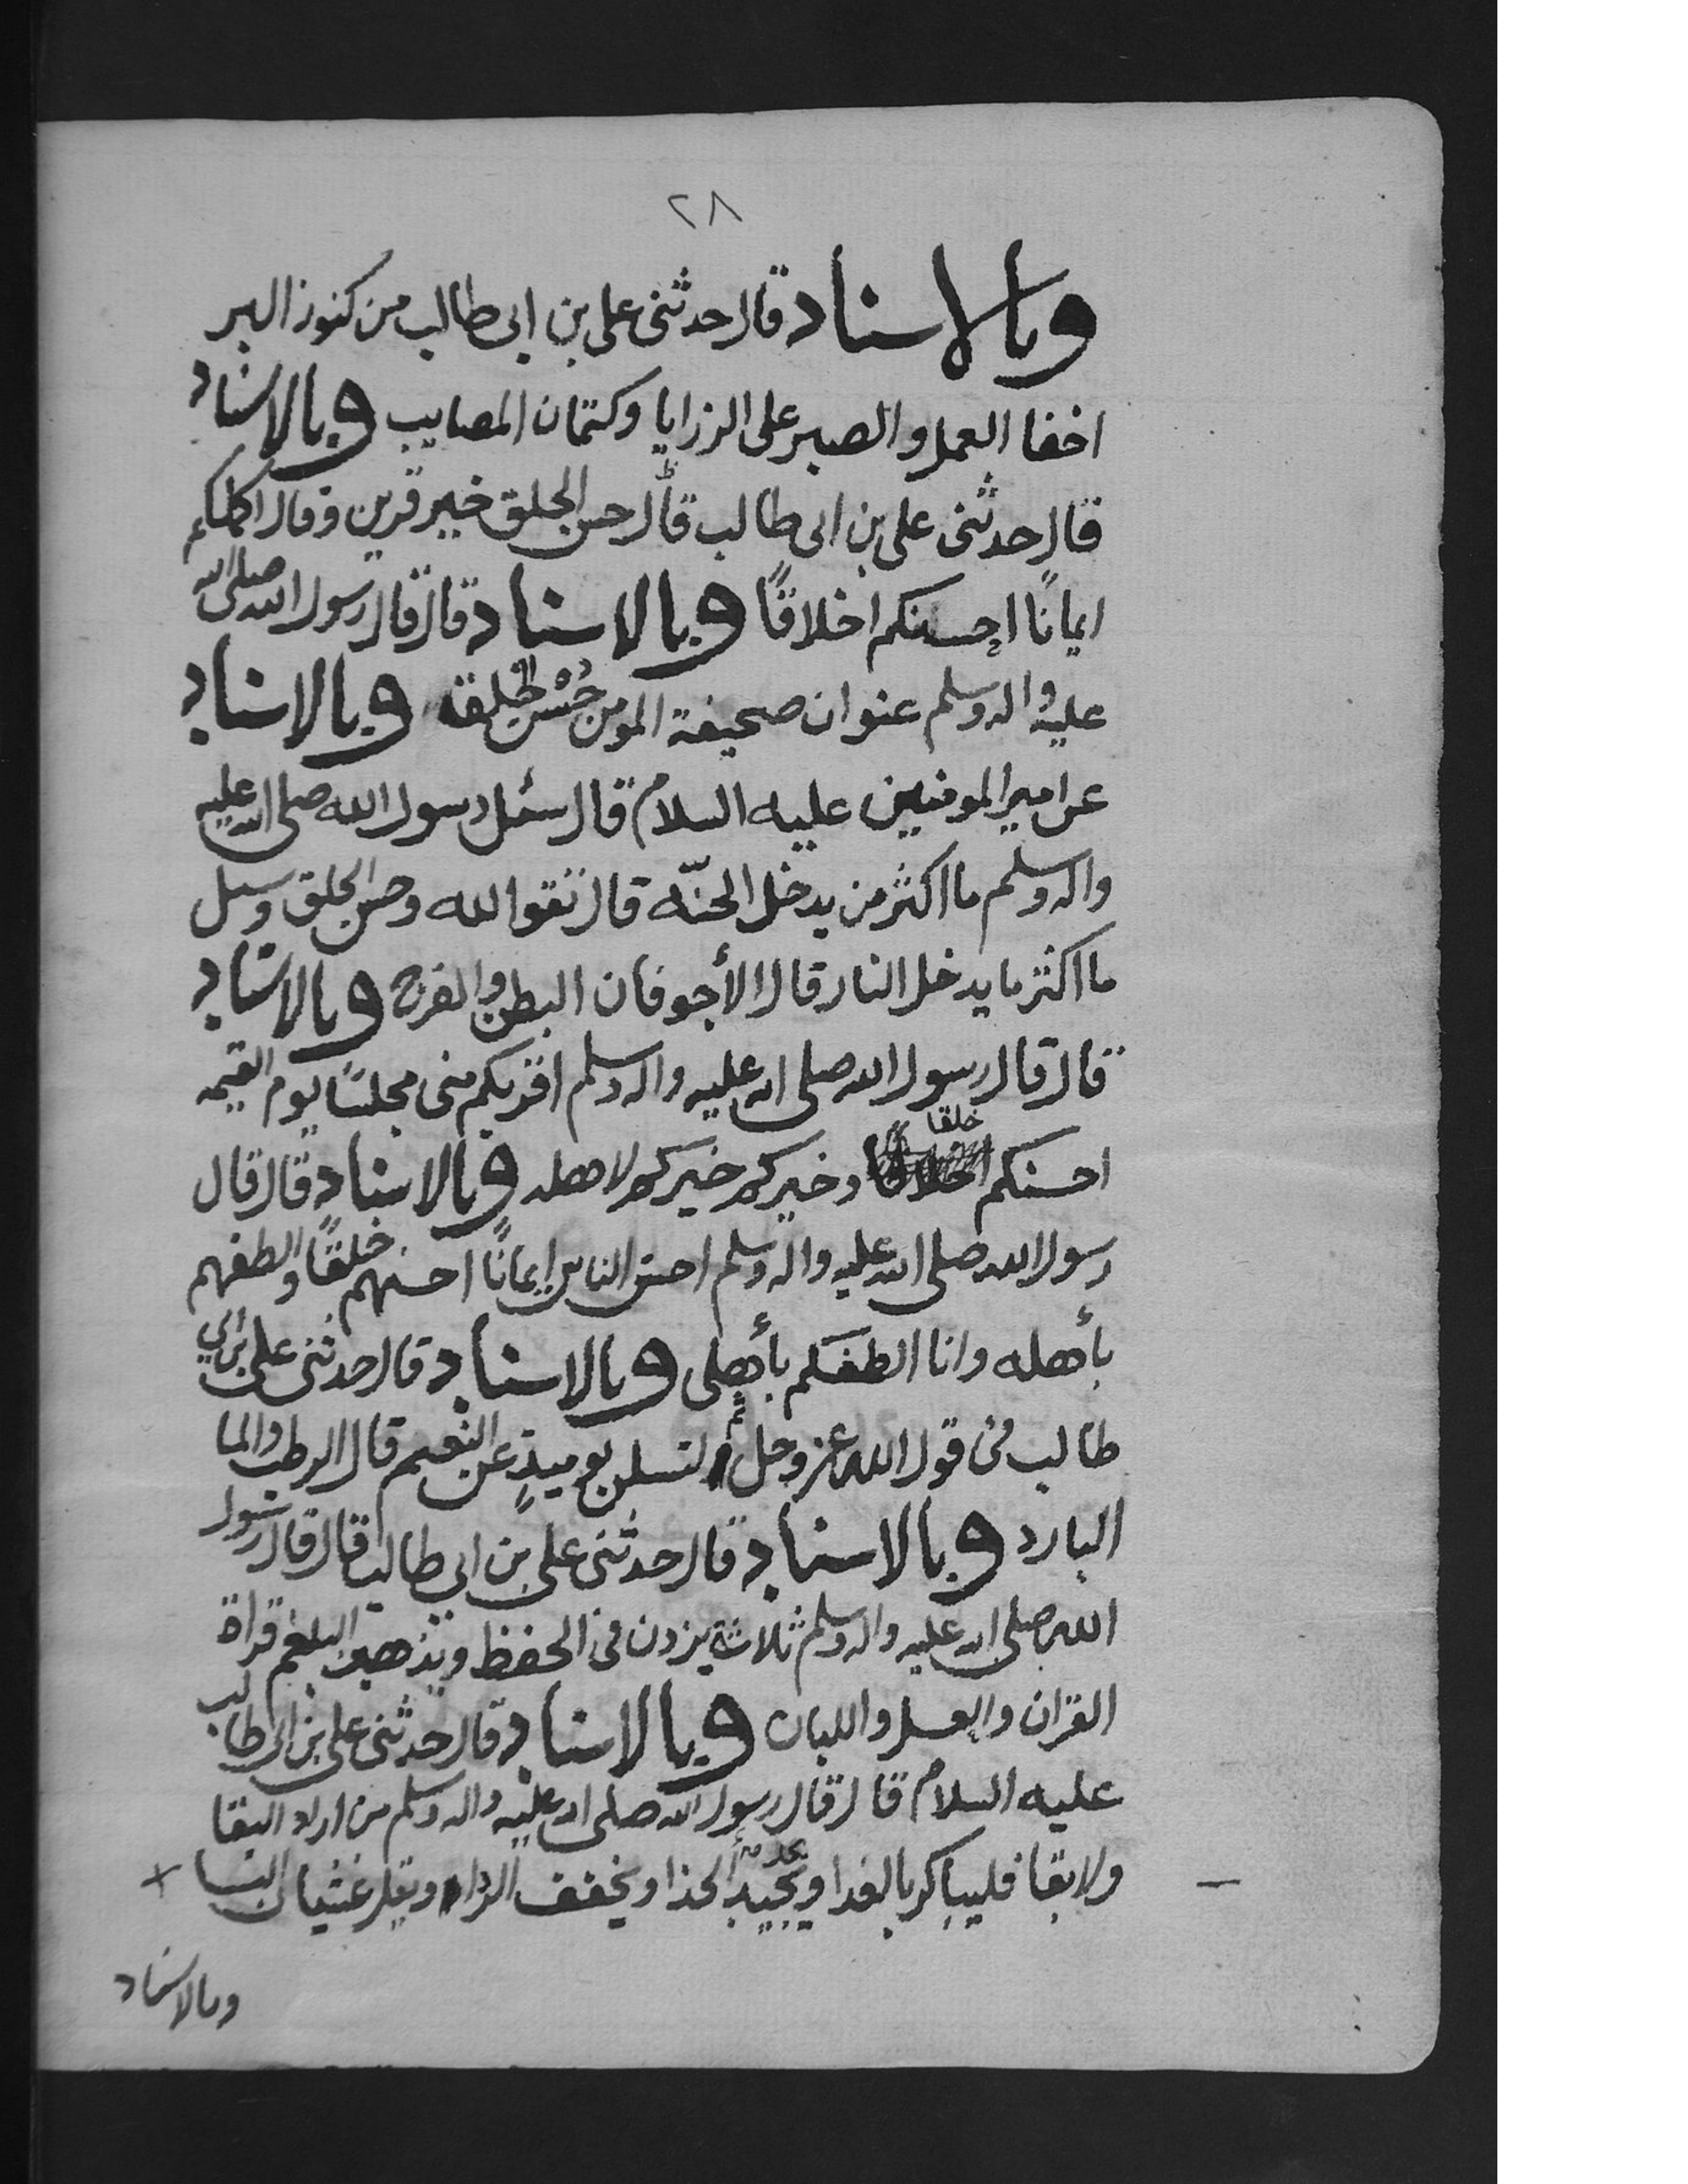 ٢٨
وبالاسناد قال حدثنى على بن ابى طالب من كنوز البر
اخفا العمل والصبر على الرزايا وكتمان المصايب وبالاسناد
قال حدثنى على بن ابى طالب قال حسن الخلق خير قرين وقال اكملكم
ايمانًا احسنكم اخلاقًا وبالاسناد قال قال رسول الله صلى الله
عليه واله وسلم عنوان صحيفة المومن حُسْن خُلقه وبالاسناد
عن امير المومنين عليه السلام قال سئل رسول الله صلى الله عليه
واله وسلم ما اكثر من يدخل الجنّه قال تقوا الله وحسن الخلق وسيل
ما اكثر ما يدخل النار قال الأجوفان البطن والفرج وبالاسناد
قال قال رسول الله صلى الله عليه واله وسلم اقربكم منى مجلسًا يوم القيمه
احسنكم خلقا وخيركم خيركم لاهله وبالاسناد قال قال
رسول الله صلى الله عليه واله وسلم احسن الناس ايمانًا احسنهم خلقًا والطفهم
بأهله وانا الطفكم بأهلى وبالاسناد قال حدثنى على بن ابي
طالب فى قول الله عز وجل ثم لتسلن يوميذٍ عن النعيم قال الرطب والما
البارد وبالاسناد قال حدثنى على بن ابى طالب قال قال رسول
الله صلى الله عليه واله وسلم ثلاثة يزدن فى الحفظ ويذهبن البلغم قراة
القران والعسل واللبان وبالاسناد قال حدثنى على بن ابى طالب
عليه السلام قال قال رسول الله صلى الله عليه واله وسلم من اراد البقا
ولا بقا فليباكر بالغدا ويجيد الحذا ويخفف الردا ويقل غشيان النسا
وبالاسناد